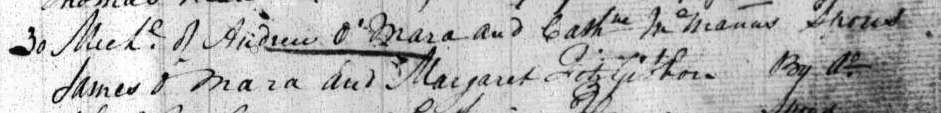 30 Mich.l of Andrew O'Mara and Cath.ne McManus Spons
James O Mara and Margaret By Do